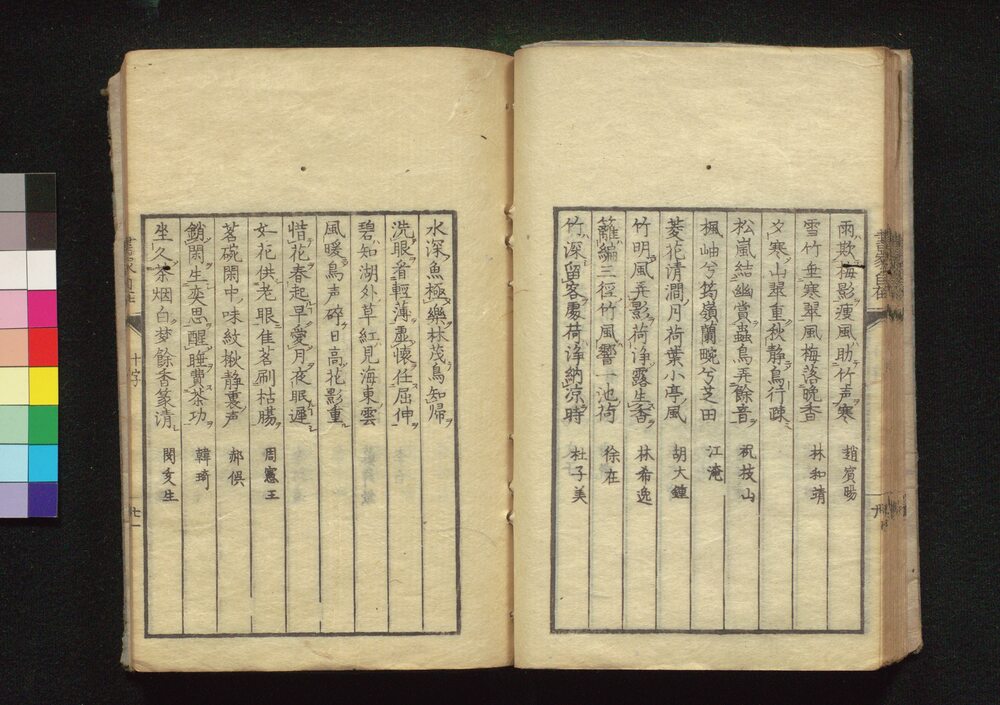 雨欺梅影瘦風助竹声寒 趙賓暘
雪竹垂寒翠風梅落晩香 林和靖
夕寒山翠重秋静鳥行疎
松嵐結幽賞蟲鳥弄餘音 祝枝山
楓岫兮筠嶺蘭畹兮芝田 江淹
菱花清澗月荷葉小亭風 胡大鐘
竹明風弄影荷浄露生香 林希逸
籬編三徑竹風響一池荷 徐在
竹深留客處荷浄納凉時 杜子美
水深魚極樂林茂鳥知帰
洗眼看輕薄虚懐任屈伸
碧知湖外草紅見海東雲
風暖鳥声碎日高花影重
惜花春起早愛月夜眠遲
女花供老眼佳茗刷枯腸 周憲王
茗碗閑中味紋楸静裏声 郝俣
銷閑生奕思醒睡費茶功 韓琦
坐久茶烟白梦餘香篆清 閔受生
十字
七一